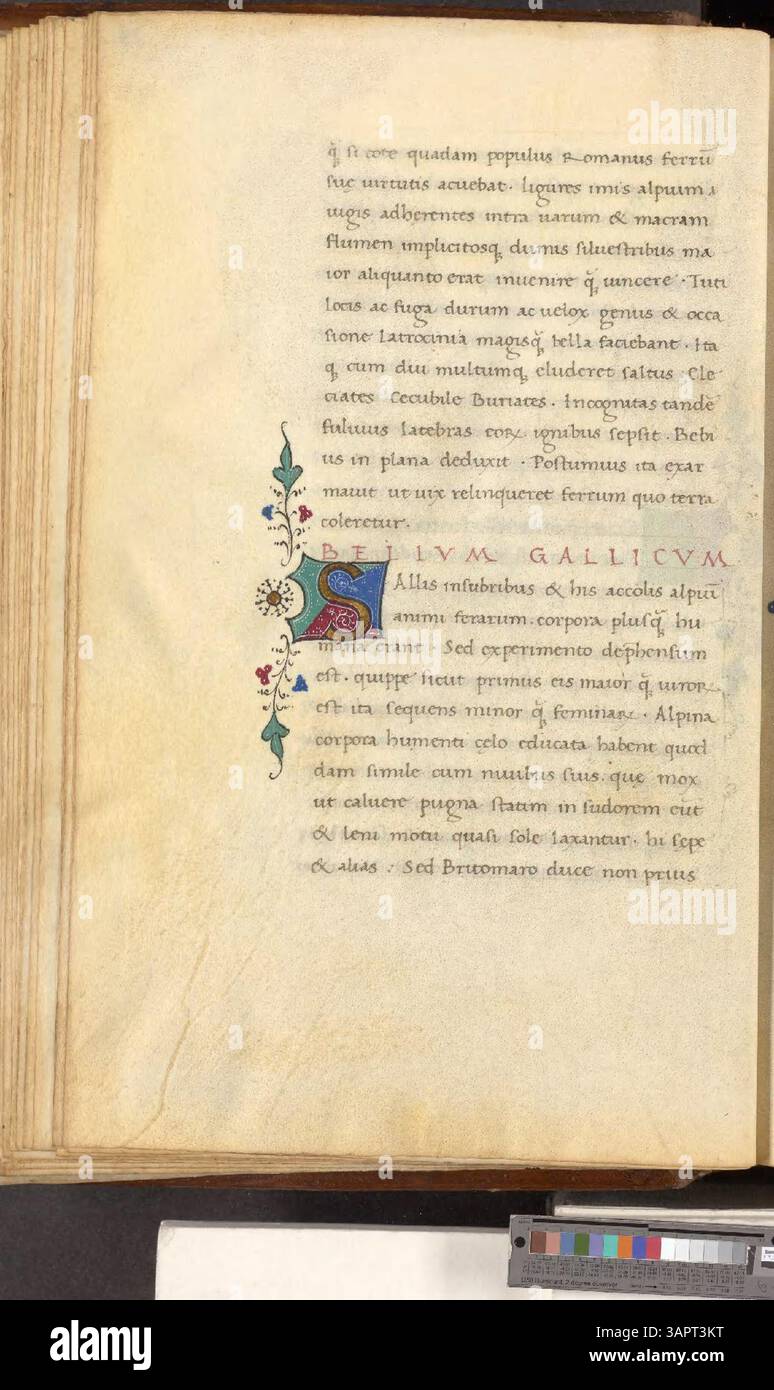 q̃ si cote quadam populus Romanus ferrū
suę uirtutis acuebat. ligures imis alpium
iugis adherentes intra uarum & macram
flumen implicitosq dumis siluestribus ma
ior aliquanto erat inuenire q̃ uincere. Tuti
locis ac fuga durum ac uelox genus & occa
sione latrocinia magisq̃ bella faciebant. Ita
q cum diu multumq eluderet saltus Cle
ciates Cecubile Buriates. Incognitas tandē
fuluius latebras eoꝝ ignibus sepsit. Bebi
us in plana deduxit. Postumius ita exar
mauit ut uix relinqueret ferrum quo terra
coleretur.
BELLVM GALLICVM
SAllis insubribus & his accolis alpiū
animi ferarum. corpora plusq̃ hu
mana erant. Sed experimento dephensum
est. quippe sicut primus eis maior q̃ uiroꝝ
est ita sequens minor q̃ feminaꝝ. Alpina
corpora humenti celo educata habent quod
dam simile cum niuibus suis. que mox
ut caluere pugna statim in sudorem eūt
& leni motu quasi sole laxantur. hi sepe
& alias. Sed Britomaro duce non prius
alamy
Image ID: 3APT3KT
www.alamy.com